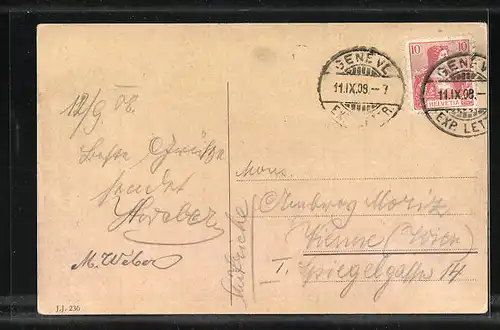 10 10
HELVETIA
GENÈVE
11.IX.08.-7
EXP. LETTR.
GENÈV
11.IX.08.-
EXP. LET
12/9 08.
Beste Grüße
sendet
Weber
M. Weber
Mons.
Moritz
Vienne (Wien)
I. Spiegelgasse 14
(Autriche)
J.J. 236